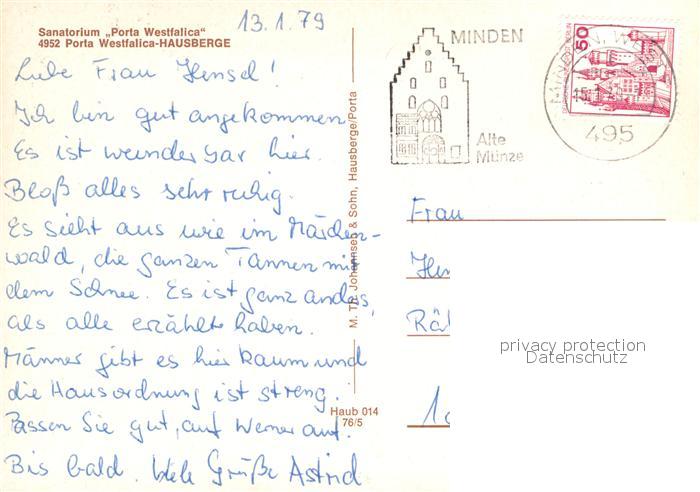 Sanatorium „Porta Westfalica"
4952 Porta Westfalica-HAUSBERGE
13.1.79
Liebe Frau Hensel!
Ich bin gut angekommen
Es ist wunderbar hier.
Bloß alles sehr ruhig.
Es sieht aus wie im Märchen-
wald, die ganzen Tannen mit
dem Schnee. Es ist ganz anders,
als alle erzählt haben.
Männer gibt es hier kaum und
die Hausordnung ist streng.
Passen Sie gut, auf Werner auf.
Bis bald. Viele Grüße Astrid
M. Th. Johannsen & Sohn, Hausberge/Porta
Haub 014
76/5
MINDEN
Alte
Münze
MINDEN, WESTF
495
50
Frau
Hen
Rä
privacy protection
Datenschutz